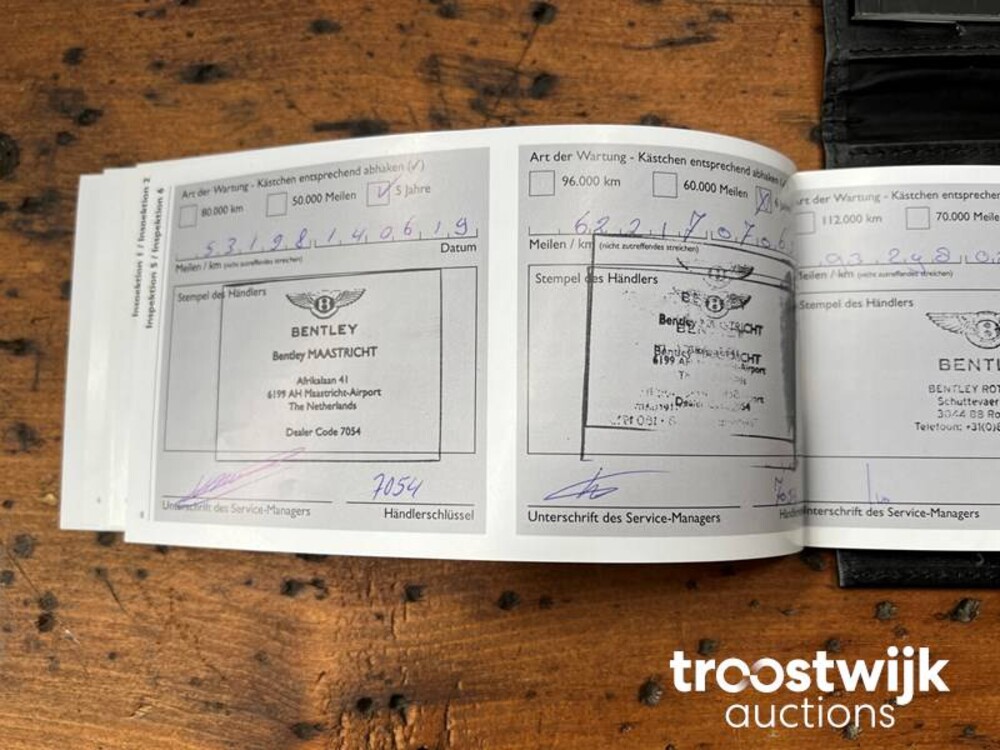 Inspektion 1 / Inspektion 2
Inspektion 5 / Inspektion 6
Art der Wartung - Kästchen entsprechend abhaken (✓)
80.000 km 50.000 Meilen ✓ 5 Jahre
53198 140619
Meilen / km (nicht zutreffendes streichen) Datum
Stempel des Händlers
BENTLEY
Bentley MAASTRICHT
Afrikalaan 41
6199 AH Maastricht-Airport
The Netherlands
Dealer Code 7054
7054
Unterschrift des Service-Managers Händlerschlüssel
8
Art der Wartung - Kästchen entsprechend abhaken
96.000 km 60.000 Meilen
62217
Meilen / km (nicht zutreffendes streichen)
Stempel des Händlers
Unterschrift des Service-Managers
der Wartung - Kästchen entsprechen
112.000 km 70.000 Meile
Meilen / km (nicht zutreffendes streichen)
Stempel des Händlers
BENTL
BENTLEY ROT
Schuttevaer
3044 BB Ro
Telefoon: +31(0)
nterschrift des Service-Managers
troostwijk
auctions